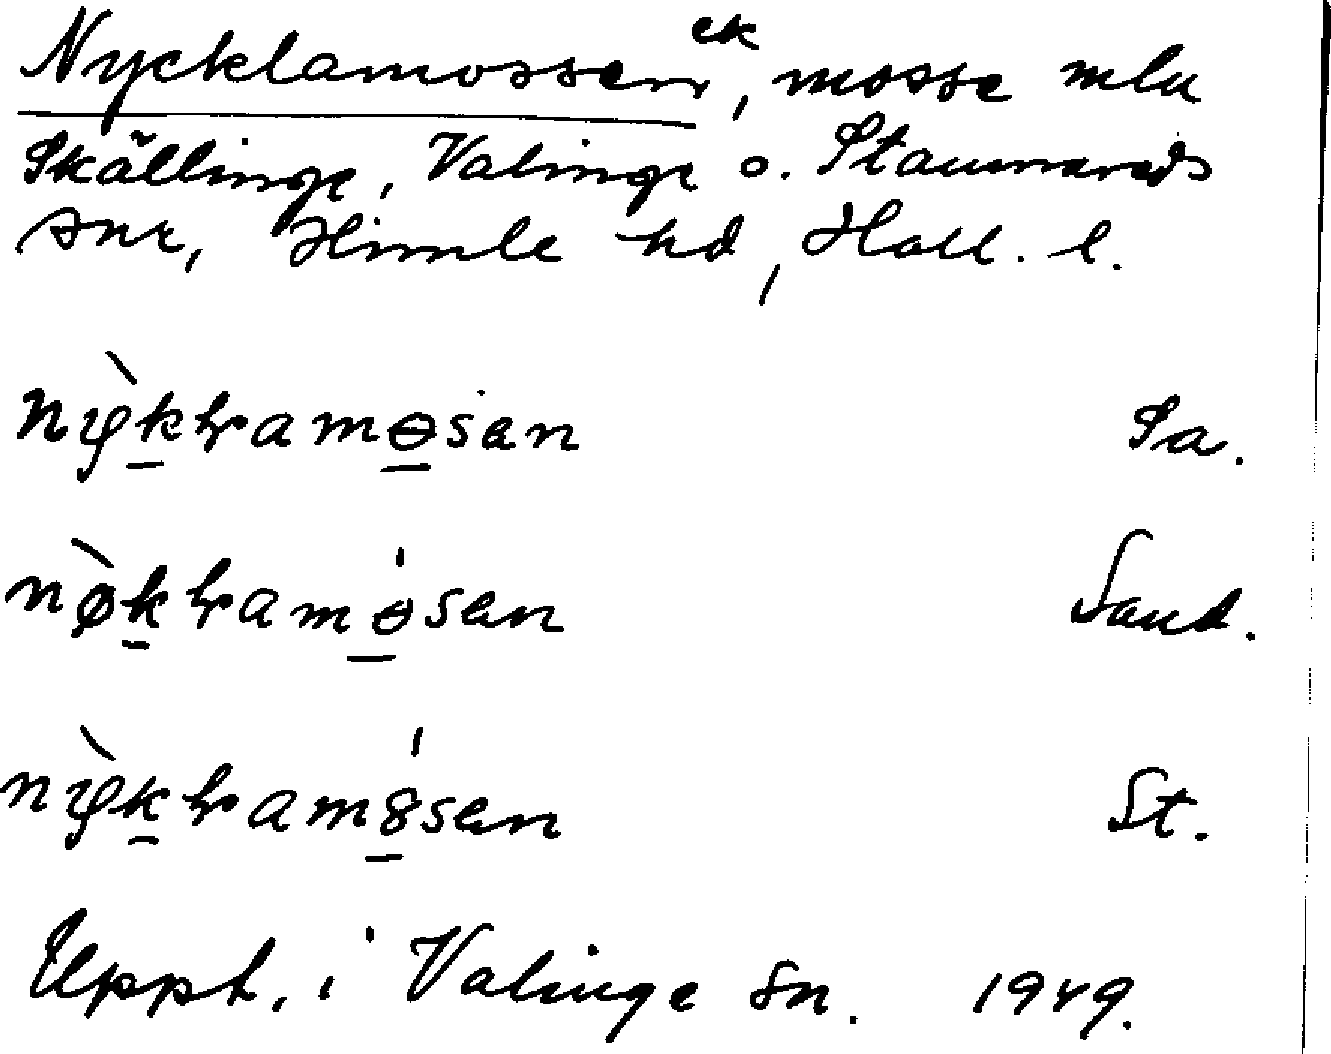 Nycklamossen ek, mosse mla
Skällinge, Valinge o. Stamnareds
snr, Himle hd, Hall. l.
nỳkhamɵsan Sa.
nø̀khamɵ́sen Sand.
nỳkham8́sen St.
Uppt. i Valinge sn. 1949.